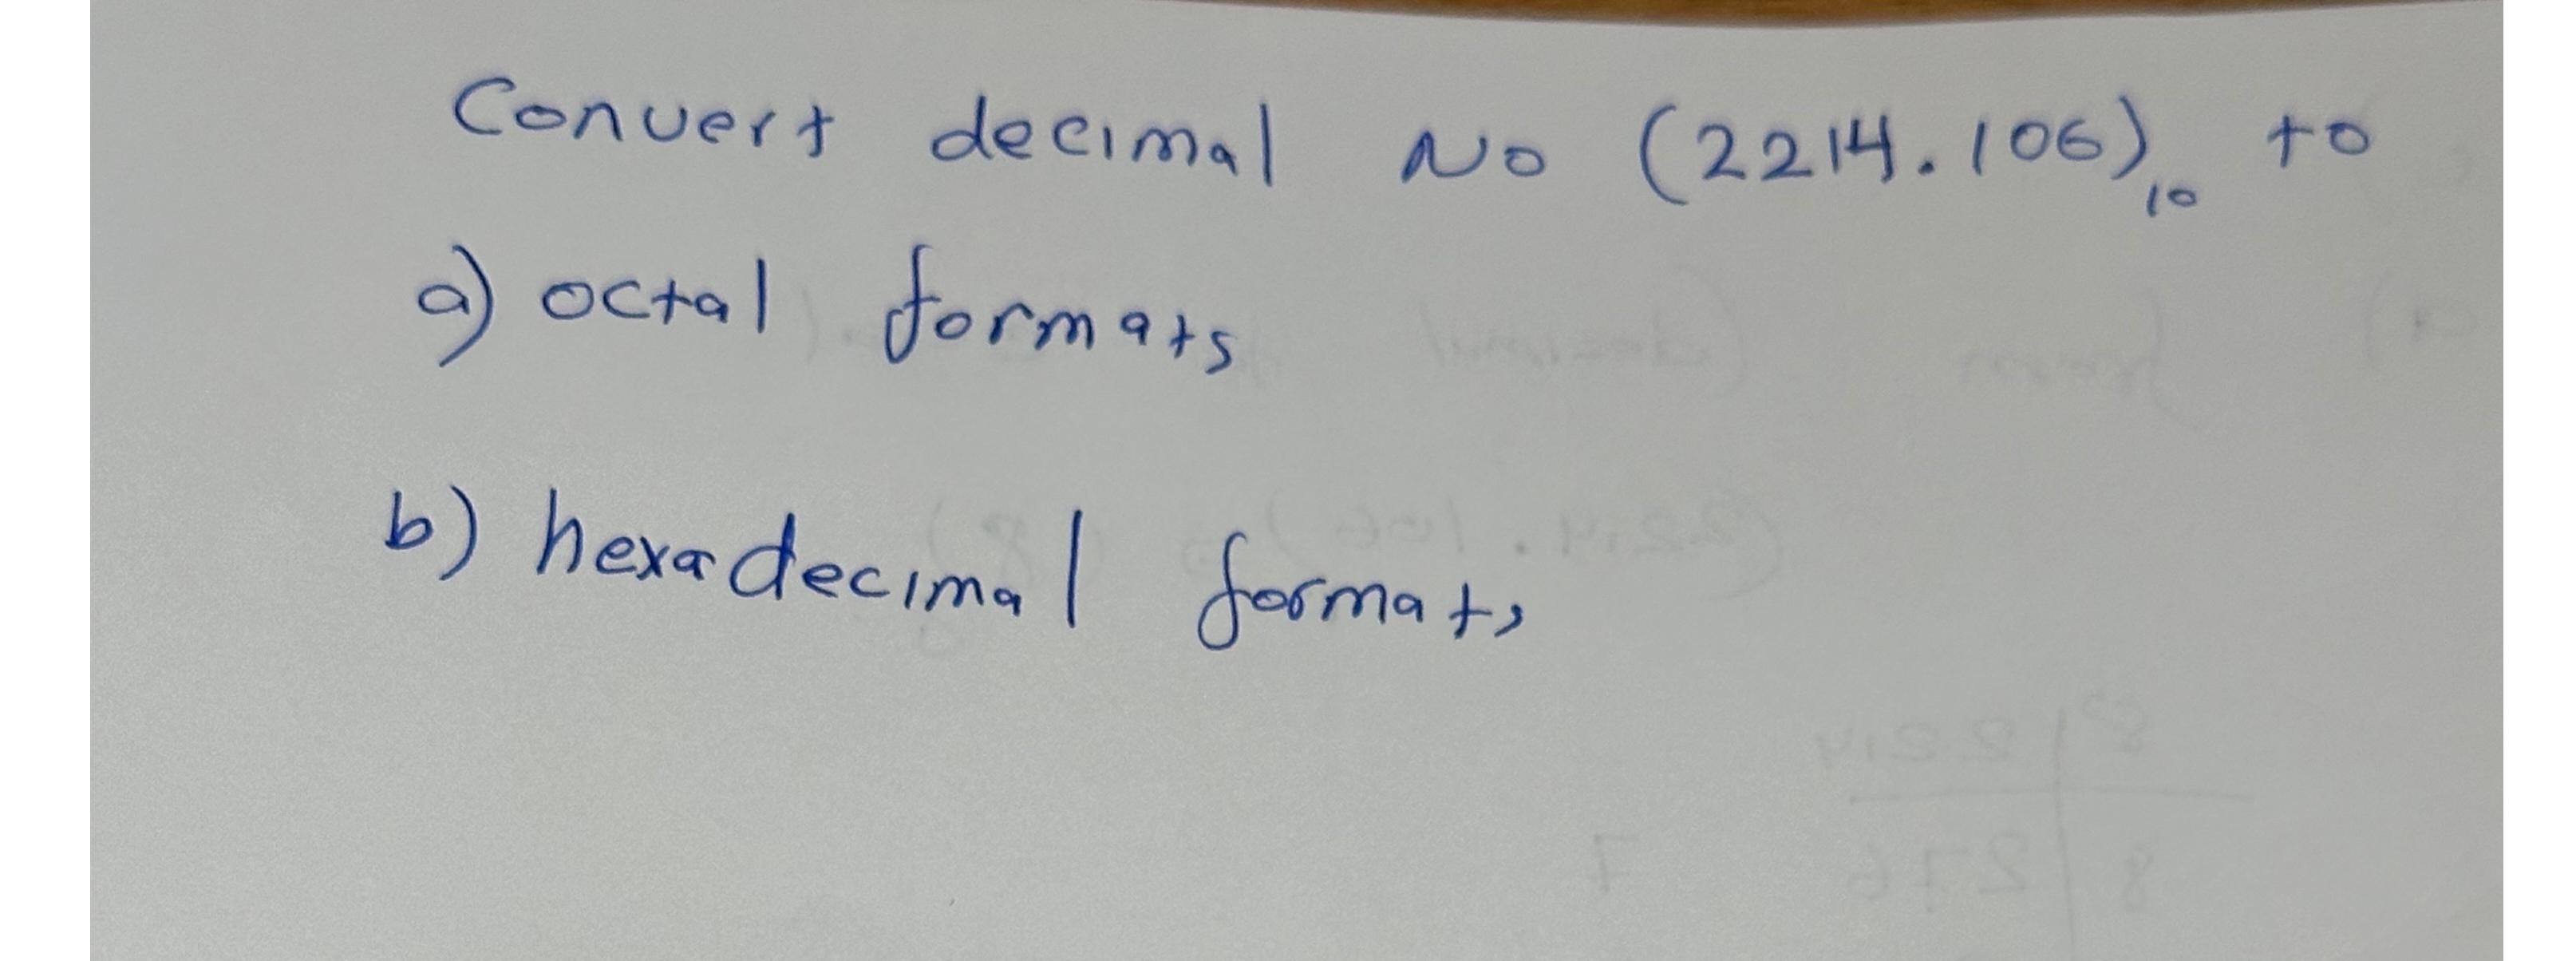 Convert decimal No (2214.106)₁₀ to
a) octal formats
b) hexadecimal formats